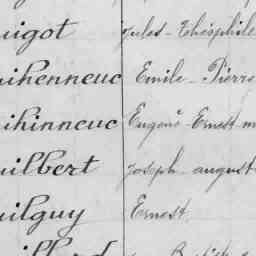 uigot Jules - Théophile
uihenneuc Emile - Pierre
uihinneuc Eugène - Ernest m
uilbert Joseph - august
uilguy Ernest